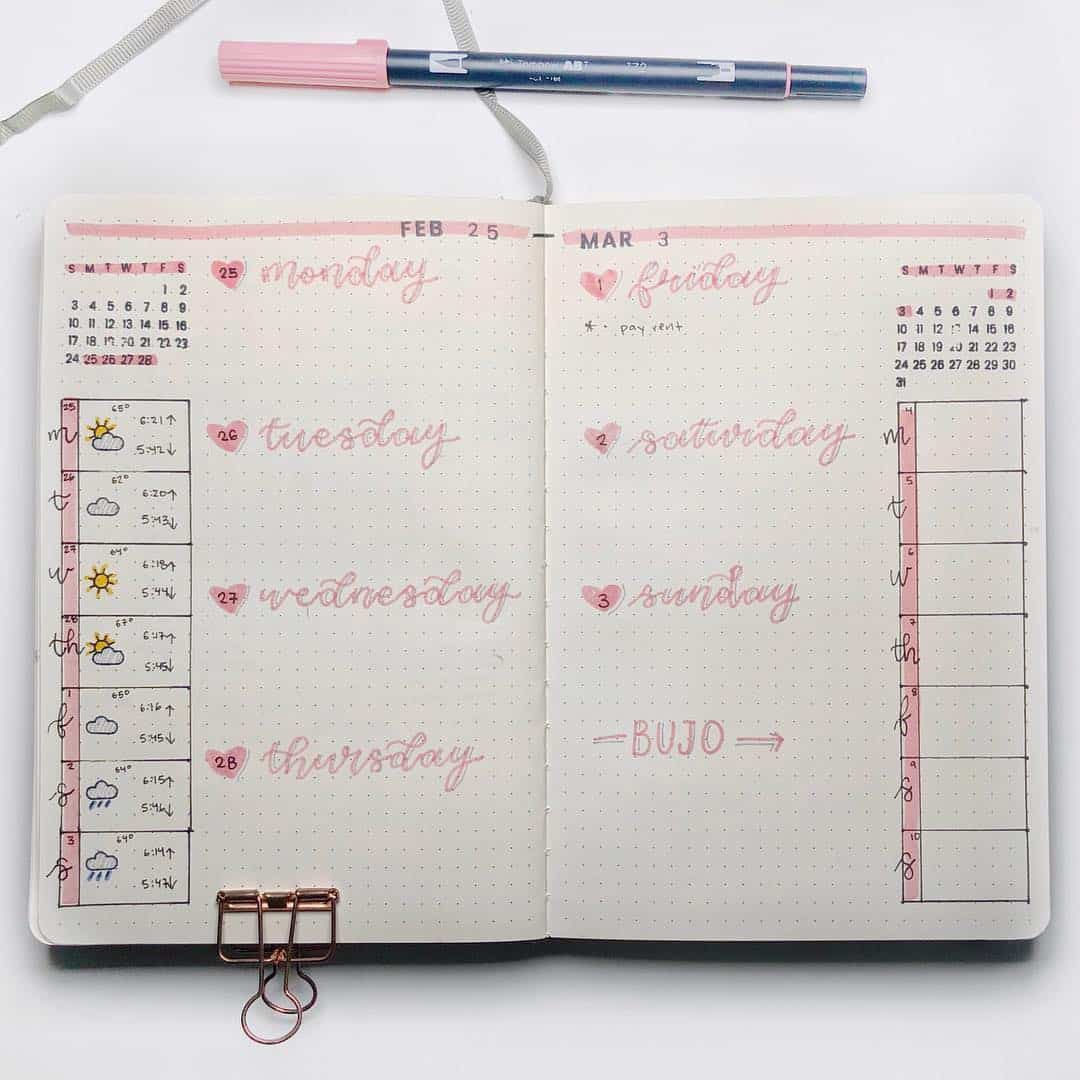 Tombow ABT
FEB 25
S M T W T F S
1 2
3 4 5 6 7 8 9
10 11 12 13 14 15 16
17 18 19 20 21 22 23
24 25 26 27 28
25 monday
25
m
65°
6:21↑
5:42↓
26 tuesday
26
t
62°
6:20↑
5:43↓
27 wednesday
27
w
64°
6:18↑
5:44↓
28
th
67°
6:17↑
5:45↓
28 thursday
1
f
65°
6:16↑
5:45↓
2
s
64°
6:15↑
5:46↓
3
s
64°
6:14↑
5:47↓
MAR 3
1 friday
* • pay rent
2 saturday
3 sunday
BUJO →
S M T W T F S
1 2
3 4 5 6 7 8 9
10 11 12 13 14 15 16
17 18 19 20 21 22 23
24 25 26 27 28 29 30
31
4
m
5
t
6
w
7
th
8
f
9
s
10
s